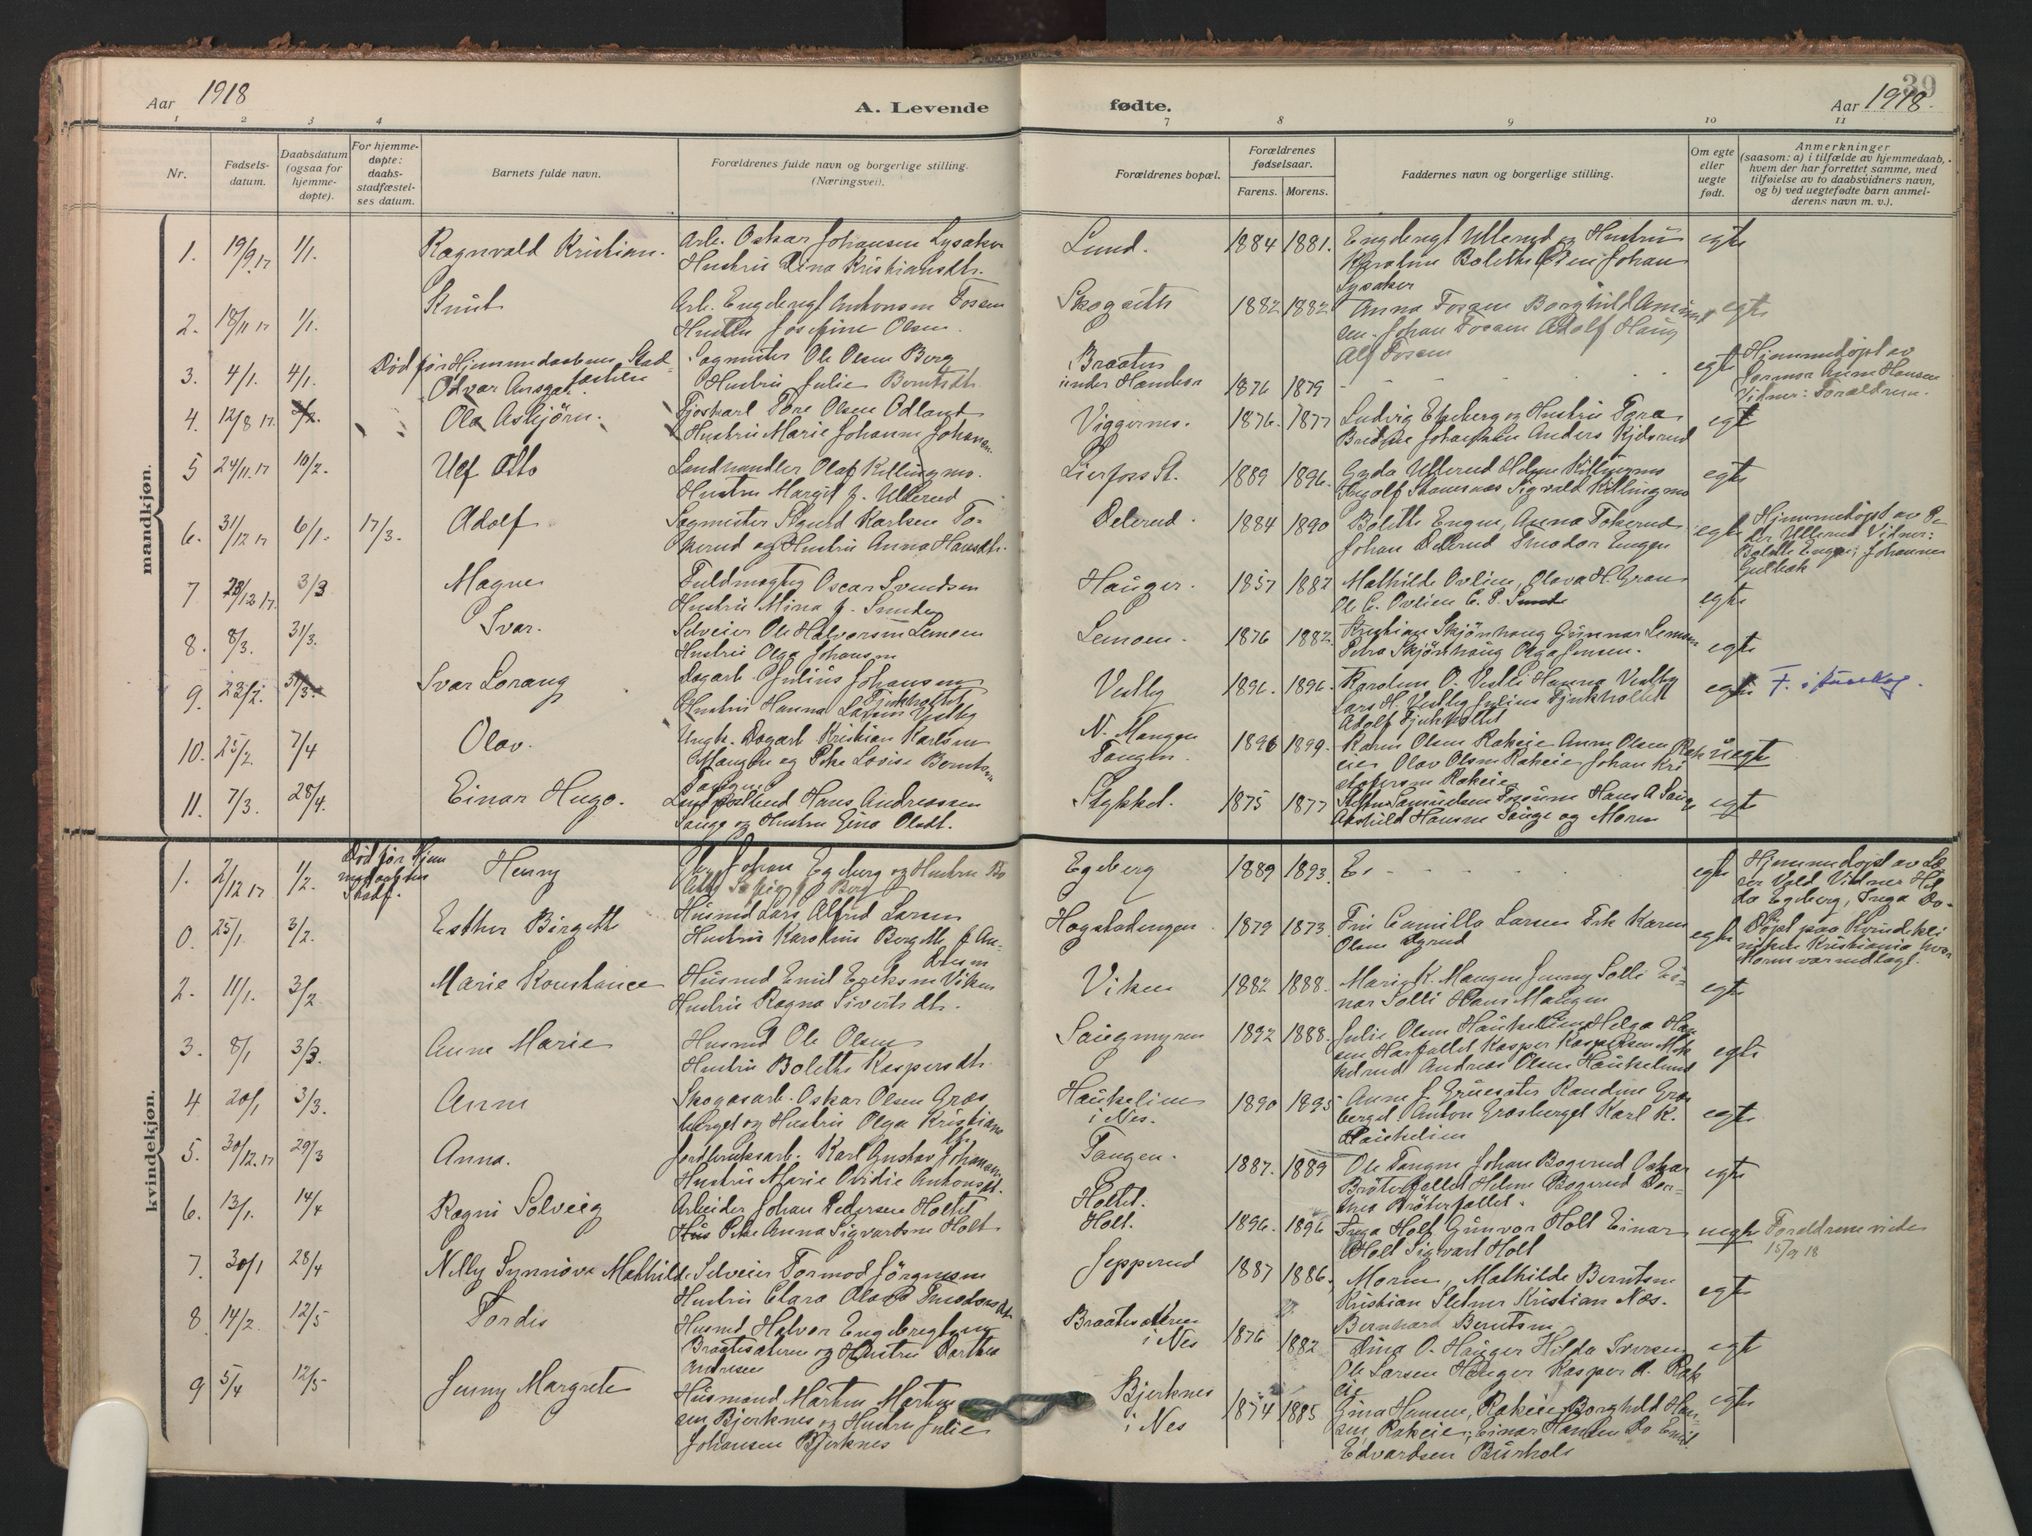 39
Aar 1918
A. Levende fødte.
Aar 1918.
1 2 3 4 7 8 9 10 11
Nr.
Fødsels-
datum.
Daabsdatum
(ogsaa for
hjemme-
døpte).
For hjemme-
døpte:
daabs-
stadfæstel-
ses datum.
Barnets fulde navn.
Forældrenes fulde navn og borgerlige stilling.
(Næringsvei).
Forældrenes bopæl.
Forældrenes
fødselsaar.
Farens. Morens.
Faddernes navn og borgerlige stilling.
Om egte
eller
uegte
født.
Anmerkninger
(saasom: a) i tilfælde av hjemmedaab,
hvem der har forrettet samme, med
tilføielse av to daabsvidners navn,
og b) ved uegtefødte barn anmel-
derens navn m. v.).
mandkjøn.
1. 19/9 17 1/1. Ragnvald Kristian. Arb. Oskar Johansen Lysaker
Hustru Lina Kristiansdt.
Lund. 1884 1881. Engebregt Ullerud og Hustru
Karoline Bolette Olsen Johan
Lysaker
egte
2. 18/11 17 1/1. Knut Arb. Engebregt Antonsen Fossen
Hustru Josefine Olsen.
Skogseth 1882 1882 Anna Fossen Borghild
sen. Johan Fossen Adolf Haug
Alf Fossen
egte
3. 4/1. 4/1. Død før Hjemmedaabens Stad-
fæstelse
Odvar Ansgar. Sagmester Ole Olsen Berg
Hustru Julie Berntsdt.
Braaten
under Hambor
1876 1879
egte
Hjemmedøpt av
Jormor Anne Hansen
Vidner: Forældrene.
4. 12/8 17. Ola Asbjörn. Fjøskarl Tore Olsen Odland
Hustru Marie Johanne Johansen
Viggernes. 1876. 1877 Ludvig Egeberg og Hustru Tora
Johannsen Anders Kjelsrud
egte
5 24/11.17. 10/2. Ulf Otto Landhandler Olaf Killingmo.
Hustru Margit f. Ullerud
Lierfoss St. 1889 1896. Gyda Ullerud Helene Killingmo
Ingolf Stamsnæs Sigvald Killingmo
egte
6. 31/12 17 6/1. 17/3. Adolf Sagmester Sigurd Karlsen To-
kerud og Hustru Anna Hansdt.
Delerud. 1884 1890 Bolette Engen, Anna Tokerud
Johan Delerud Teodor Engen
egte
Hjemmedøpt av Pe-
der Ullerud Vidner:
Bolette Engen, Johannes
Gulbæk
7 28/12 17. 3/3 Magne Fuldmægtig Oscar Svendsen
Hustru Mina f. Sunde
Hauger. 1857 1882 Mathilde Ovlien, Olava H. Gran
Ole C. Ovlien C. P. Sunde
egte
8. 8/3. 31/3. Ivar. Selveier Ole Halvorsen Lemoen
Hustru Olga Johansen
Lemoen. 1876 1882. Kristiane Skjönhaug Gunnar Lemoen
Petra Skjönhaug Olga Jensen.
egte
9. 23/2. 31/3. Ivar Lorang Dagarb. Julius Johansen
Fjukholtet
Hustru Hanna Larsen Vestby
Vestby 1896. 1896. Karoline O. Vestli Hanna Vestby
Lars H. Vestby Julius Fjukholtet
Adolf Fjukholtet
egte
10. 25/2 7/4 Olav. Ungk. Dagarb Kristian Karlsen
Mangen og Pike Lovise Berntsen
Tangen
N. Mangen
Tangen.
1896 1899. Karen Olsen Rakeie Anne Olsen Rak-
eie Olav Olsen Rakeie Johan Kri-
stofersen Rakeie
uegte
11. 7/3. 28/4. Einar Hugo. Landpostbud Hans Andreassen
Sauge og Hustru Gina Olsdt.
Stykket. 1875 1877 Samuelsen Fossum Hans A. Sauge
Hansen Sauge og Moren
egte
kvindekjøn.
1. 2/12 17 1/2. Død før Hjem
medaabens
Stadf.
Henny Johan Egeberg og Hustru
Berg
Egeberg 1889 1893.
egte
Hjemmedøpt av Læ-
ge Vold Vidner Hil
da Egeberg, Inga Do-
0. 25/1 3/2. Esther Birgette Husmd Lars Alfred Larsen
Hustru Karoline Bergette f. An-
dresen
Hogstadengen 1879 1873. Fru Camilla Larsen Frk Karen
Olsen
egte
Døpt paa Kvindekli
niken Kristiania hvor
Moren var indlagt.
2. 11/1. 3/2 Marie Konstance Husmd Emil Eriksen Viken
Hustru Ragna Sivertsdt.
Viken 1882 1888. Marie K. Mangen Jenny Solli Ei-
nar Solli Hans Mangen
egte
3. 8/1 3/3. Anne Marie Husmd Ole Olsen
Hustru Bolette Kaspersdt.
Saugmyren 1892 1888. Julie Olsen Haukelien Helga Han
sen Harfallet Kasper Kaspersen
Andreas Olsen Haukelund
egte
4 20/1 3/3. Anne Skogsarb. Oskar Olsen Græs
berget og Hustru Olga Kristians
dt.
Haukelien
i Nes.
1890 1895 Anne J. Gruesæter Randine Græs
berget Anton Græsberget Karl K.
Haukelien
egte
5. 30/12.17 29/3 Anna. Jordbruksarb. Karl Gustav Johansen
Hustru Marie Ovidie Antonsdt.
Tangen. 1887. 1889 Ole Tangen Johan Bogerud Oskar
Bröterfallet Helene Bogerud
Bröterfallet.
egte
6. 13/1. 14/4 Ragni Solveig Arbeider Johan Pedersen Holtet
Pike Anna Sigvardsen Holt
Holtet.
Holt.
1896. 1896 Inga Holt Gunvor Holt Einar
Holt Sigvart Holt
uegte
Forældrene viede
15/9 18
7. 30/1 28/4 Nelly Synnöve Mathilde Selveier Tormod Jörgensen
Hustru Clara Olava Teodorsdt.
Jepperud 1887 1886. Moren, Mathilde Berntsen
Kristian Sletner Kristian Næs.
Bernhard Berntsen
egte
8. 14/2. 12/5 Tordis Husmd Halvor Engebregtsen
Braatesæteren og Hustru Dorthea
Andresen
Braatesæteren
i Nes
1876 1882 Lina O. Hauger Hilda Iversen
Ole Larsen Hauger Kasper A. Rak
eie
egte
9 5/4 12/5 Jenny Margrete Husmand Marten Marten
sen Bjerknes og Hustru Julie
Johansen Bjerknes
Bjerknes
i Nes
1874 1885 Gina Hansen, Rakeie Borghild Han-
sen, Rakeie, Einar Hansen Do Emil
Edvardsen Burhol
egte